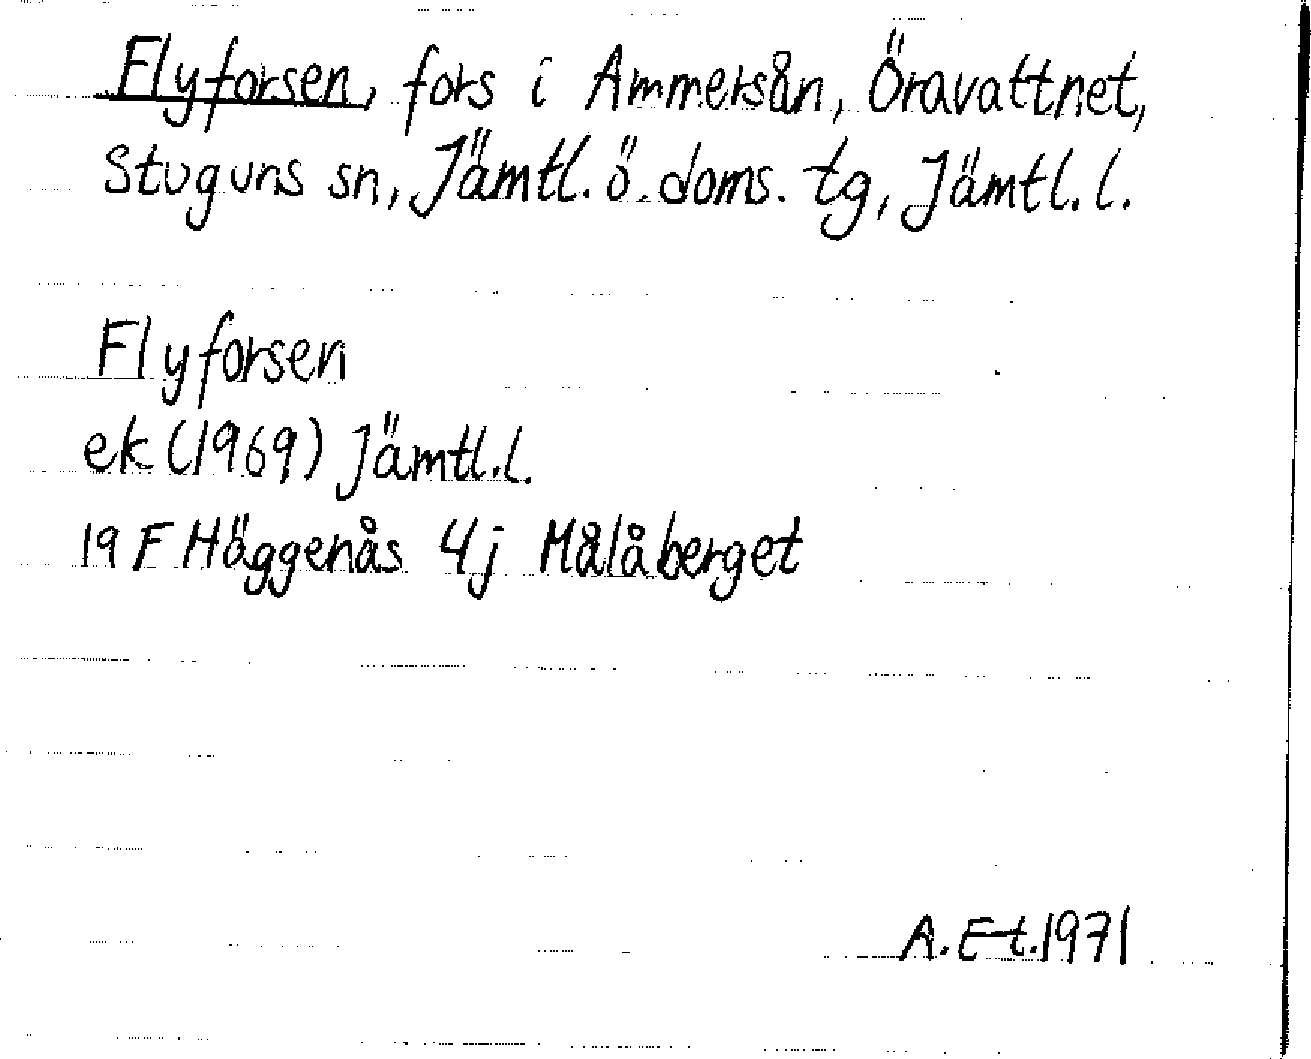 Flyforsen, fors i Ammersån, Öravattnet,
Stuguns sn, Jämtl. ö. doms. tg, Jämtl. l.
Flyforsen
ek (1969) Jämtl. l.
19 F Häggenås 4j Målåberget
A. Et. 1971